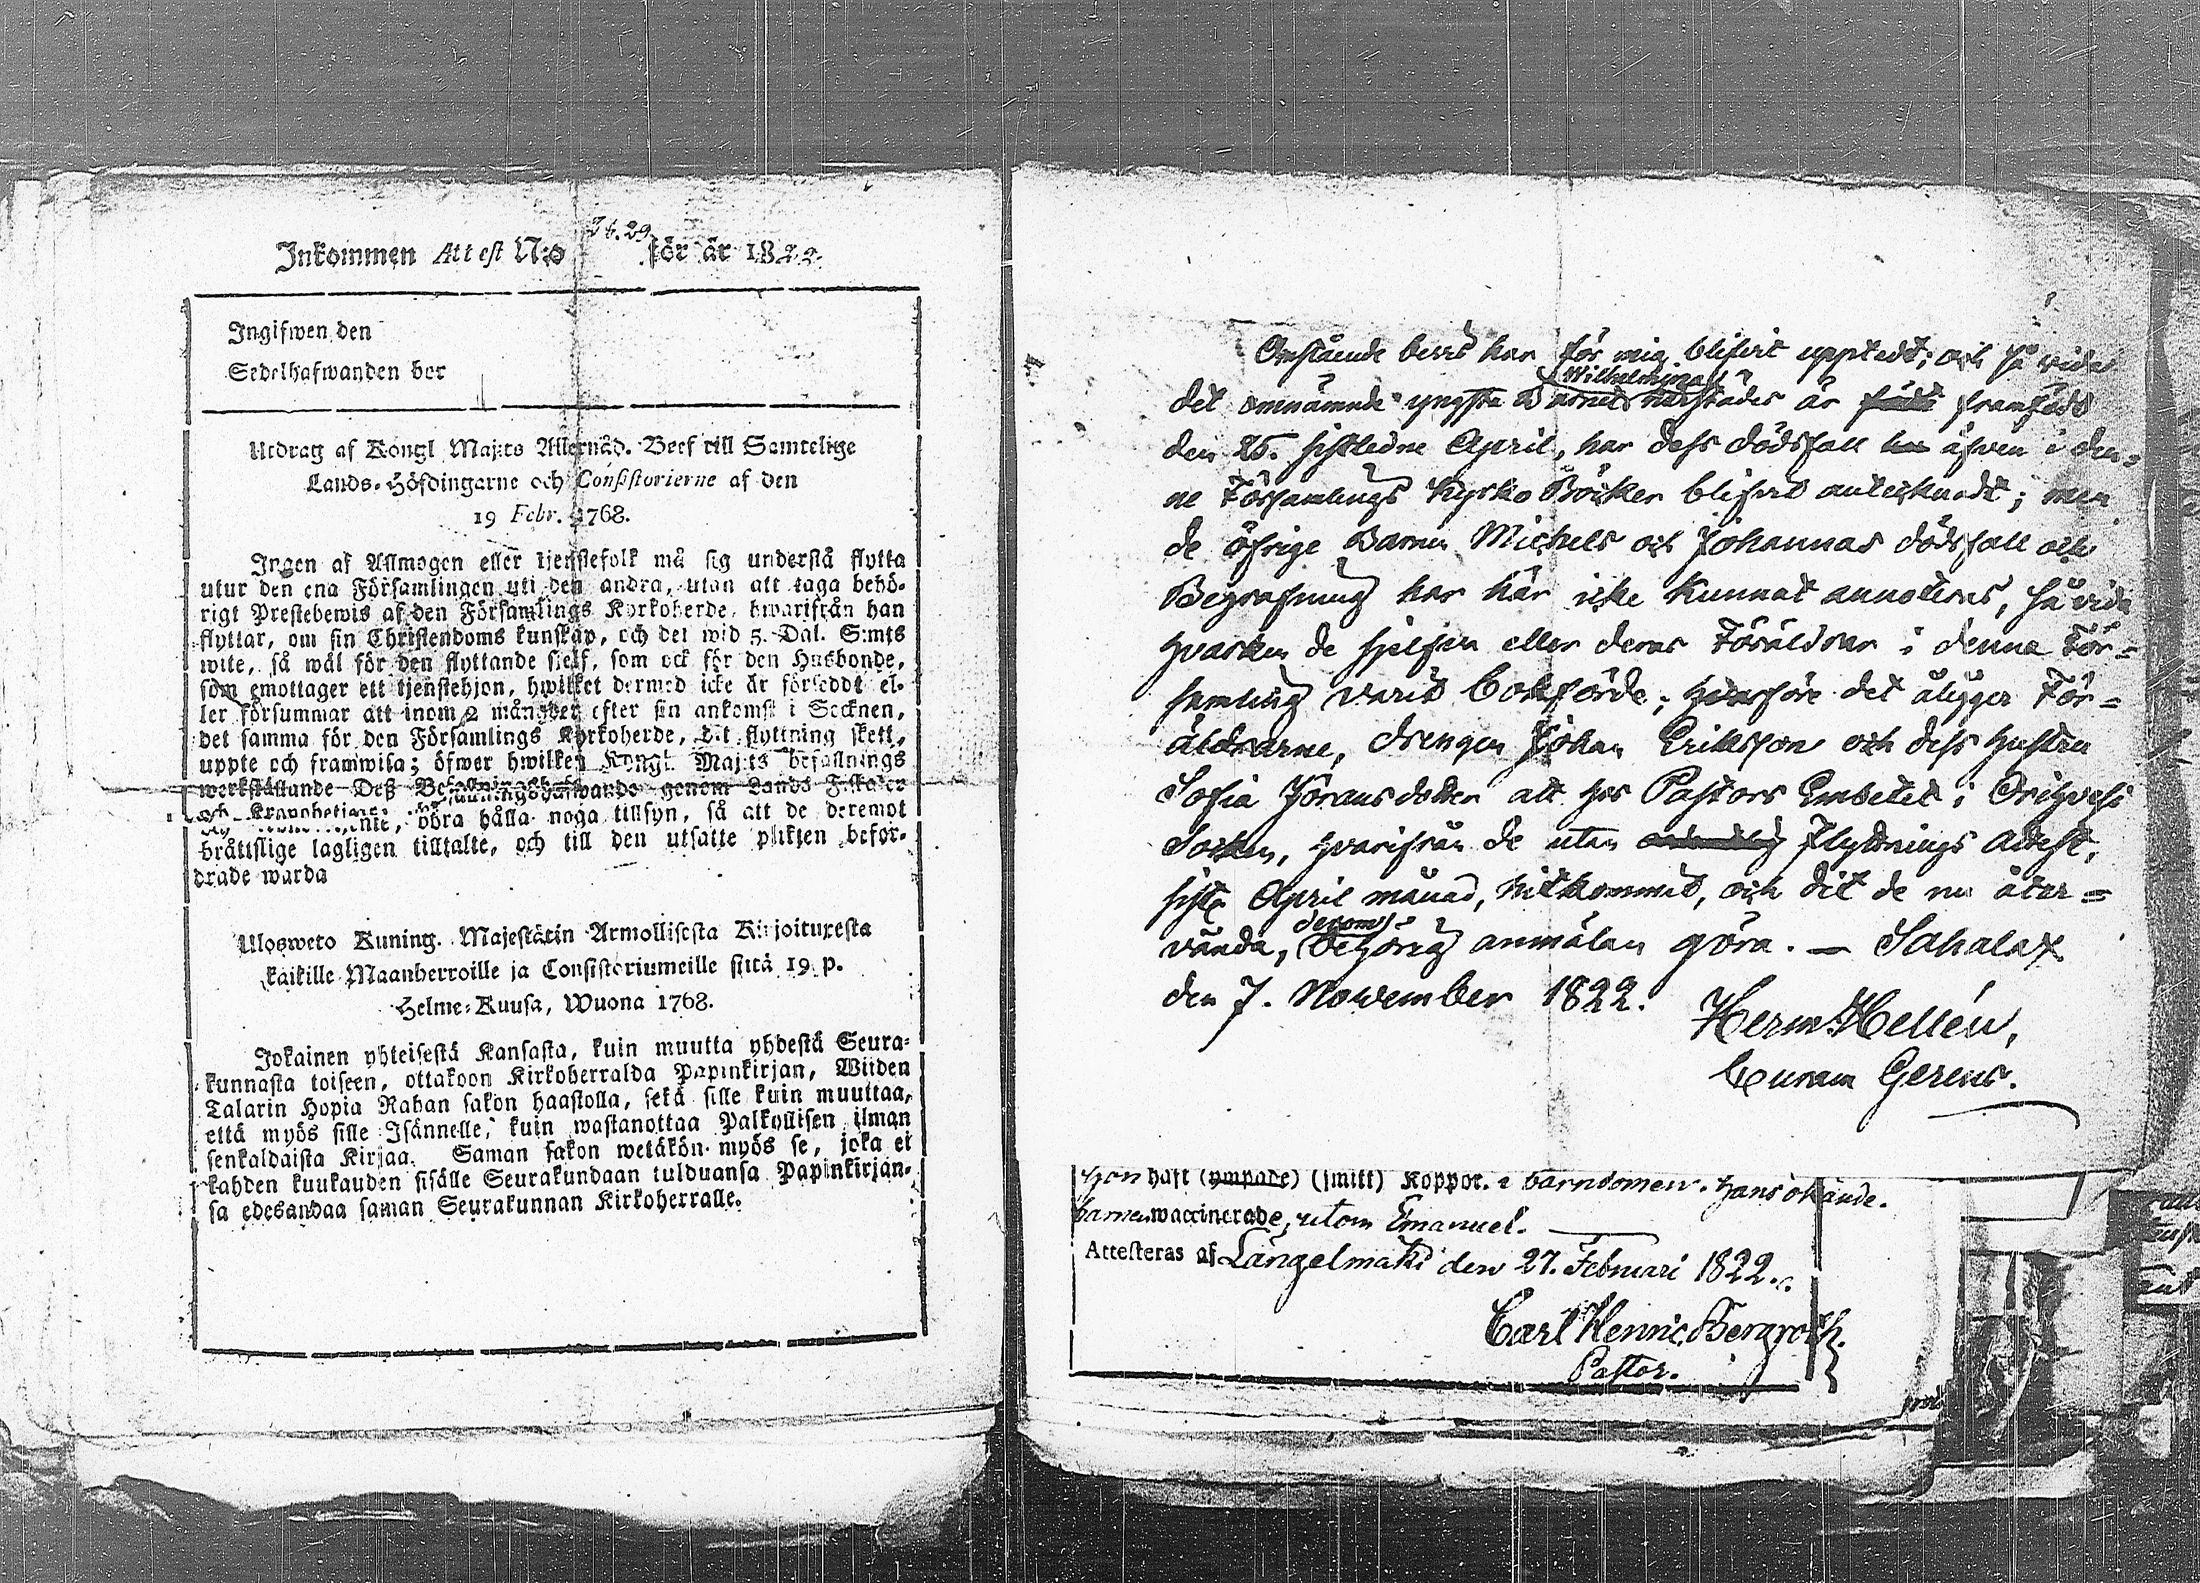 Inkommen Attest N:o 28. 29. för år 1822.
Ingifwen den
Sedelhafwanden bor
Utdrag af Kongl Maj:ts Allernåd. Bref till Samtelige
Lands-Höfdingarne och Consistorierne af den
19 Febr. 1768.
Ingen af Allmogen eller tjenstefolk må sig understå flytta
utur den ena Församlingen uti den andra, utan att taga behö-
rigt Prestebewis af den Församlings Kyrkoherde, hwarifrån han
flyttar, om sin Christendoms kunskap, och det wid 5. Dal. S:mts
wite, så wäl för den flyttande sielf, som ock för den Husbonde,
som emottager ett tjenstehjon, hwilket dermed icke är förseddt el-
ler försummar att inom 2 månader efter sin ankomst i Socknen,
det samma för den Församlings Kyrkoherde, dit flyttning skett,
uppte och framwisa; öfwer hwilket Kongl. Maj:ts befallnings
werkställande Deß genom Lands Fiskaler
och böra hålla noga tillsyn, så att de deremot
bråttslige lagligen tilltalte, och till den utsatte plikten befor-
drade warda
Ulosweto Kuning. Majestätin Armollisesta Kirjoituxesta
kaikille Maanherroille ja Consistoriumeille siitä 19. p.
Helme-Kuusa, Wuona 1768.
Jokainen yhteisestä Kansasta, kuin muutta yhdestä Seura-
kunnasta toiseen, ottakoon Kirkoherralda Papinkirjan, Wiiden
Talarin Hopia Rahan sakon haastolla, sekä sille kuin muuttaa,
että myös sille Isännelle, kuin wastanottaa Palkollisen ilman
senkaldaista Kirjaa. Saman sakon wetäkön myös se, joka ei
kahden kuukauden sisälle Seurakundaan tulduansa Papinkirjan-
sa edesandaa saman Seurakunnan Kirkoherralle.
Omstående bevis har för mig blifvit uppvedt; och så vida
det omnämnde yngste Barnet Wilhelmina härstädes är framfödt
den 25. sistledne April, har dess dödsfall äfven i den-
ne Församlings Kyrko Böcker blifvit antecknadt; men
de öfrige Barnen Michels och Johannas dödsfall och
Begrafning har här icke kunnat annoteras, så vida
hvarken de sjelfva eller deras Föräldrar i denne För-
samling varit bokförde; hvarföre det åligger För-
äldrarne, drengen Johan Eriksson och dess hustru
Sofia Jöransdotter att hos Pastors Embetet i Orihvesi
Socken, hvarifrån de utan Flyttnings Attest,
siste April månad, hitkommit, och dit de nu åter-
vända, derom behörig anmälan göra. — Sahalax
den 7. November 1822.
Herm Hellén,
Curam Gerens.
Hon haft (ympade) (smitt) Koppor. i barndomen. Hans okände.
barnen waccinerade, utom Emanuel.
Attesteras af Längelmäki den 27. Februari 1822.
Carl Henric Bergroth.
Pastor.